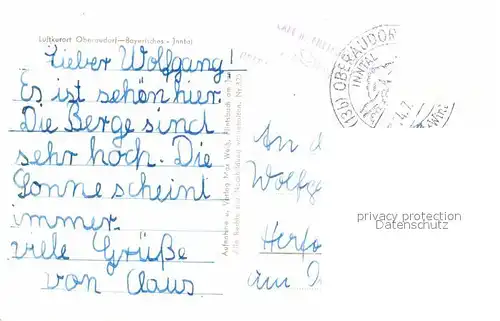 Luftkurort Oberaudorf—Bayerisches - Inntal
Lieber Wolfgang!
Es ist schön hier.
Die Berge sind
sehr hoch. Die
Sonne scheint
immer.
viele Grüße
von Claus
Aufnahme u. Verlag Max Weiß, Flintsbach am Inn
Alle Rechte zur Nachbildung vorbehalten.
(13b) OBERAUDORF
INNTAL
An d
Wolfg
Herfo
am
privacy protection
Datenschutz